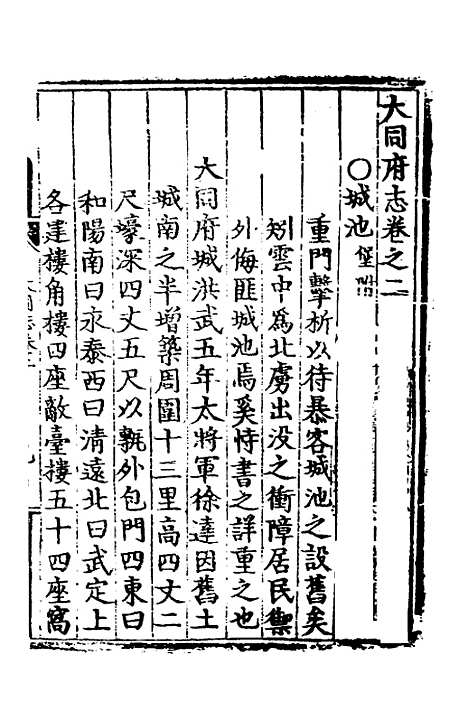 大同府志卷之二
○城池堡附
重門擊柝以待暴客城池之設舊矣
矧雲中爲北虜出没之衝障居民禦
外侮匪城池焉奚恃書之詳重之也
大同府城洪武五年大將軍徐達因舊土
城南之半增築周圍十三里高四丈二
尺壕深四丈五尺以甎外包門四東曰
和陽南曰永泰西曰清遠北曰武定上
各建樓角樓四座敵臺樓五十四座窩